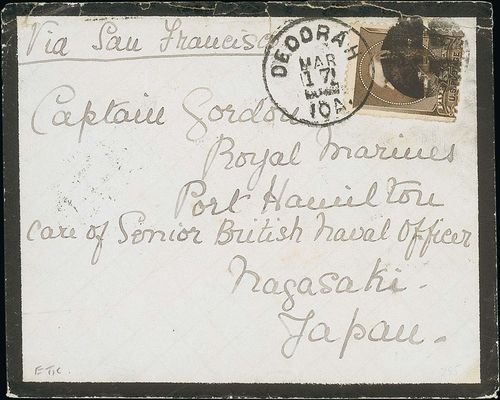 Via San Francisco
DECORAH
MAR
17
IOA.
Captain Gordon
Royal Marines
Port Hamilton
Care of Senior British Naval Officer
Nagasaki.
Japan.